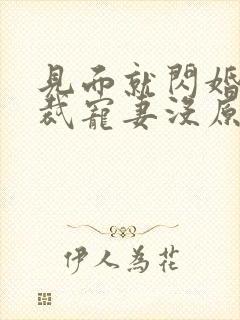 見面就閃婚
裁寵妻沒原
伊人為花